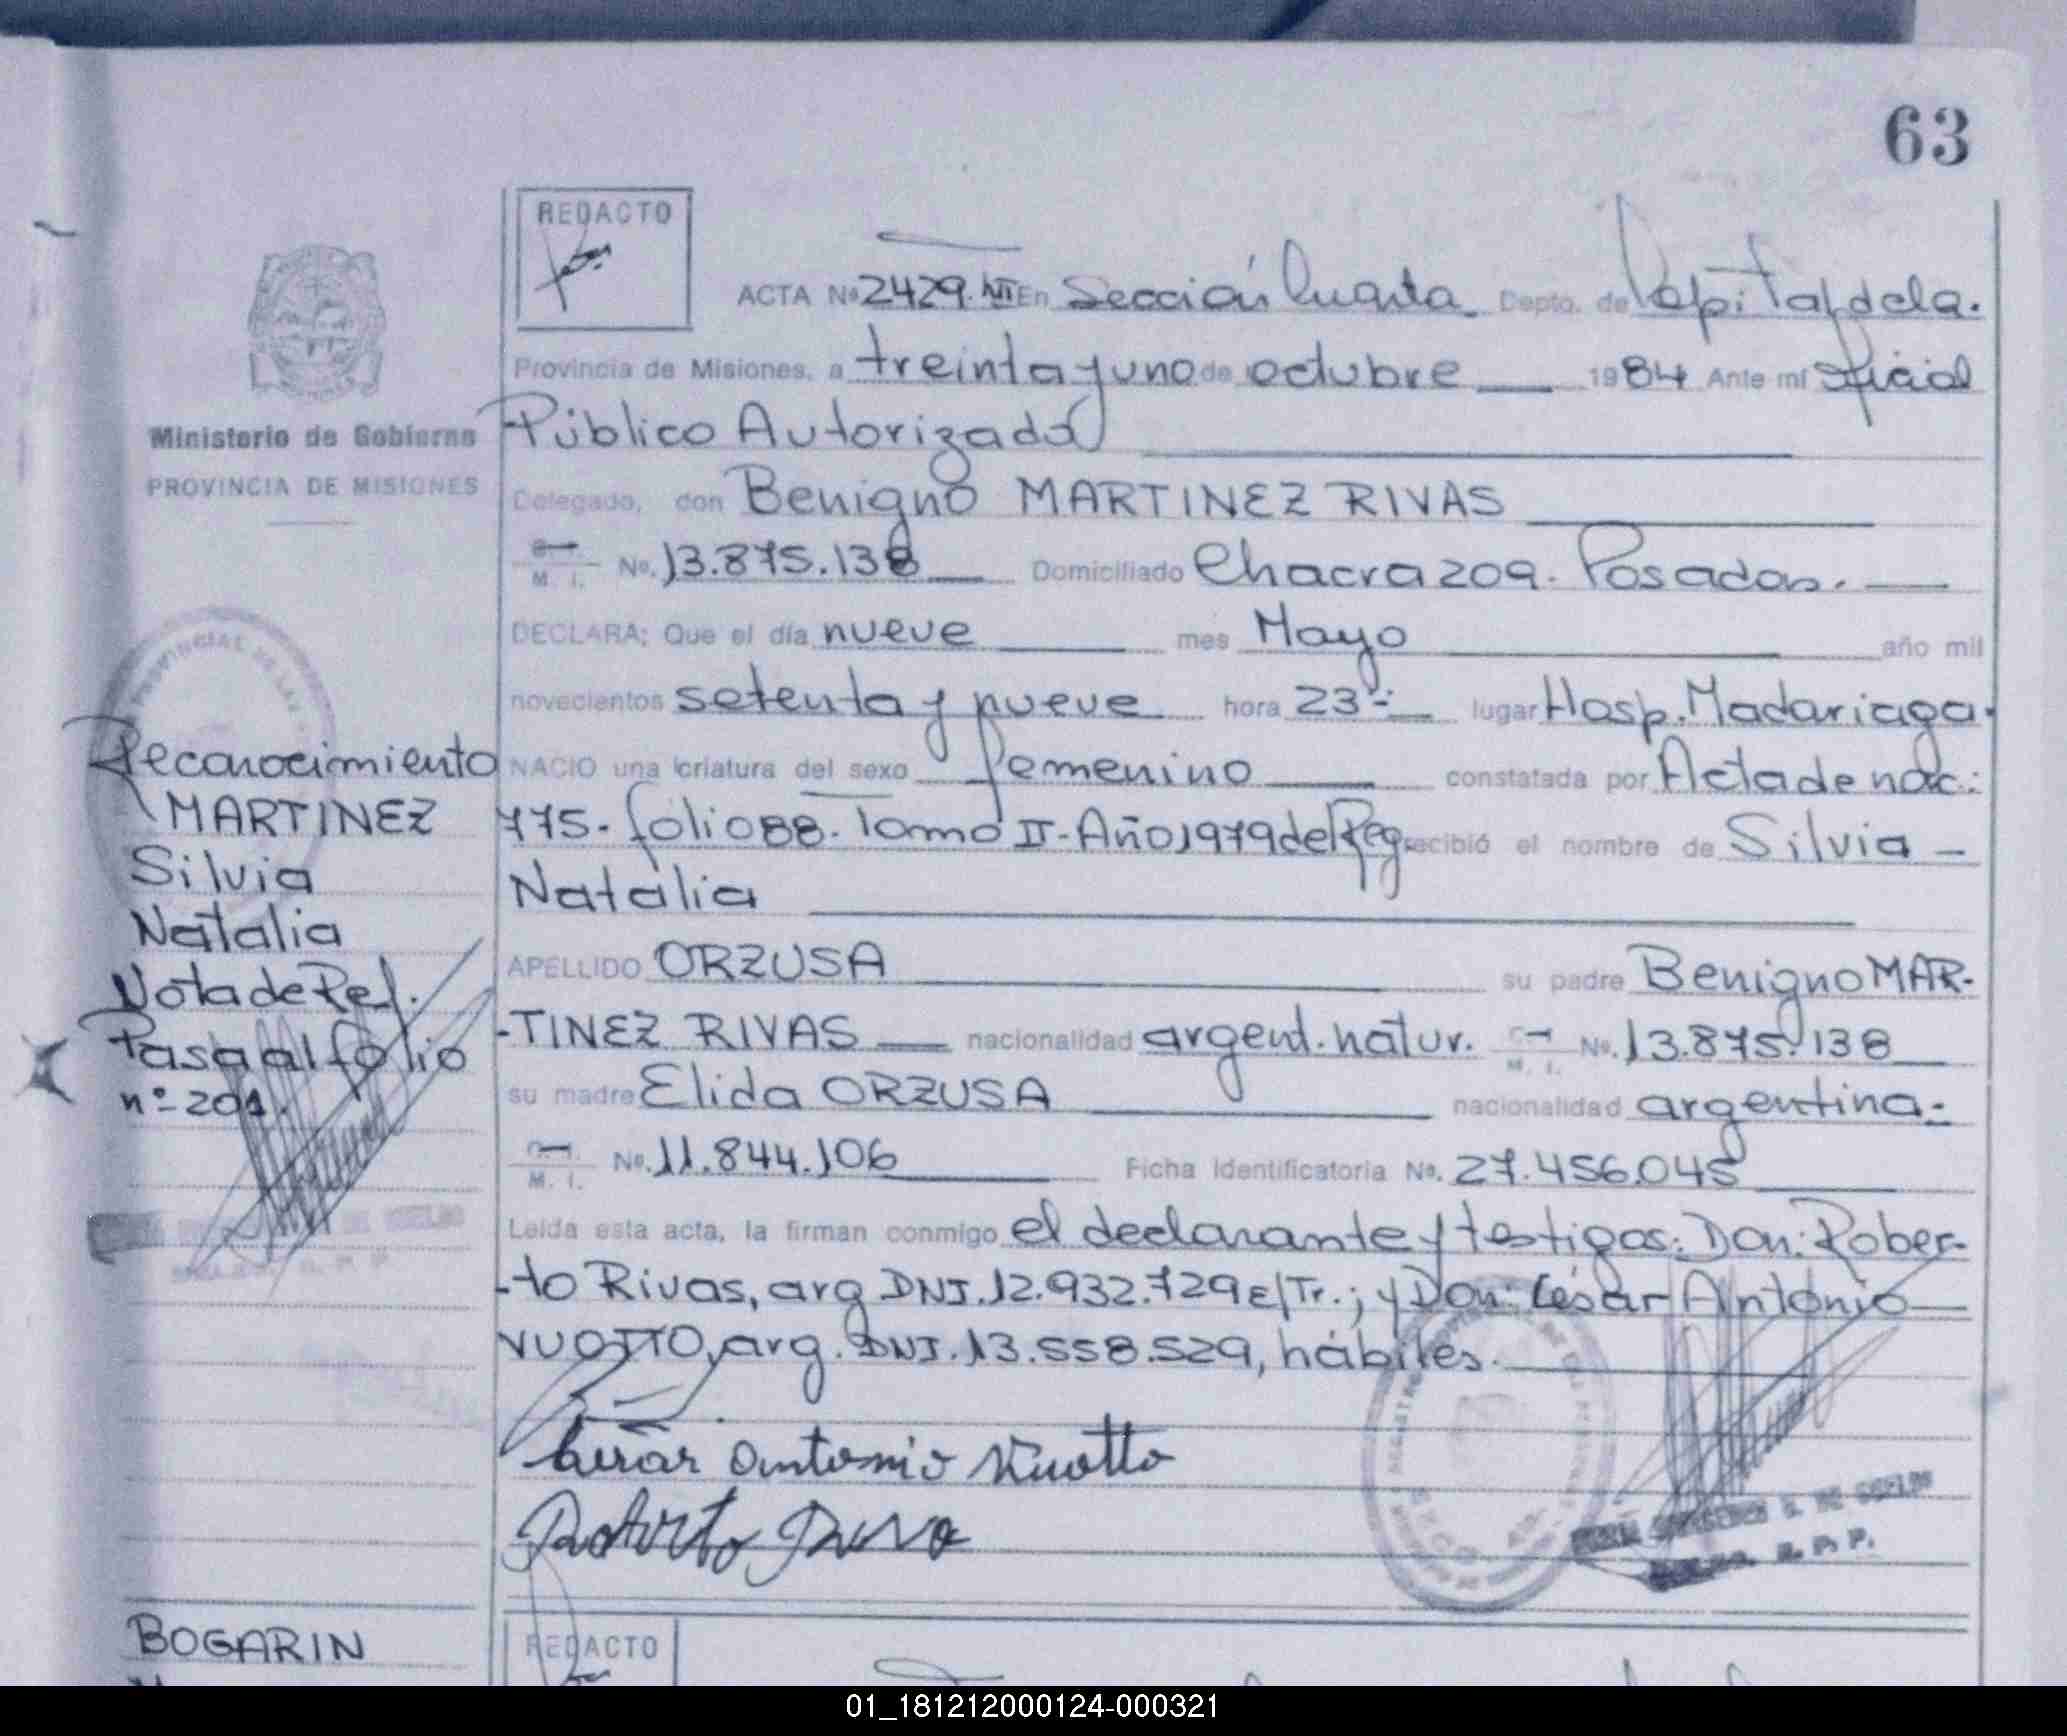 63
REDACTO
ACTA Nº 2429. VII En Sección Cuarta Depto. de Capital de la.
Provincia de Misiones, a treinta y uno de octubre 1984 Ante mí Oficial
Ministerio de Gobierno
Público Autorizado
PROVINCIA DE MISIONES
Delegado, don Benigno MARTINEZ RIVAS
M. I. No. 13.875.138 Domiciliado Chacra 209. Posadas.
DECLARA: Que el día nueve mes Mayo año mil
novecientos setenta y nueve hora 23- lugar Hosp. Madariaga.
NACIO una criatura del sexo femenino constatada por Acta de nac:
775- folio 88- Tomo II- Año 1979 del Reg recibió el nombre de Silvia -
Natalia
APELLIDO ORZUSA su padre Benigno MAR-
-TINEZ RIVAS nacionalidad argent. natur. M. I. No. 13.875.138
su madre Elida ORZUSA nacionalidad argentina-
M. I. No. 11.844.106 Ficha Identificatoria No. 27.456.045
Leída esta acta, la firman conmigo el declarante y testigos: Don: Rober-
-to Rivas, arg DNI. 12.932.729 E/Tr.; y Don: César Antonio
VUOTTO, arg. DNI. 13.558.529, hábiles.
Reconocimiento
MARTINEZ
Silvia
Natalia
Nota de Ref.
Pasa al folio
nº- 201.
César Antonio Vuotto
Roberto Rivas
BOGARIN
REDACTO
01_181212000124-000321